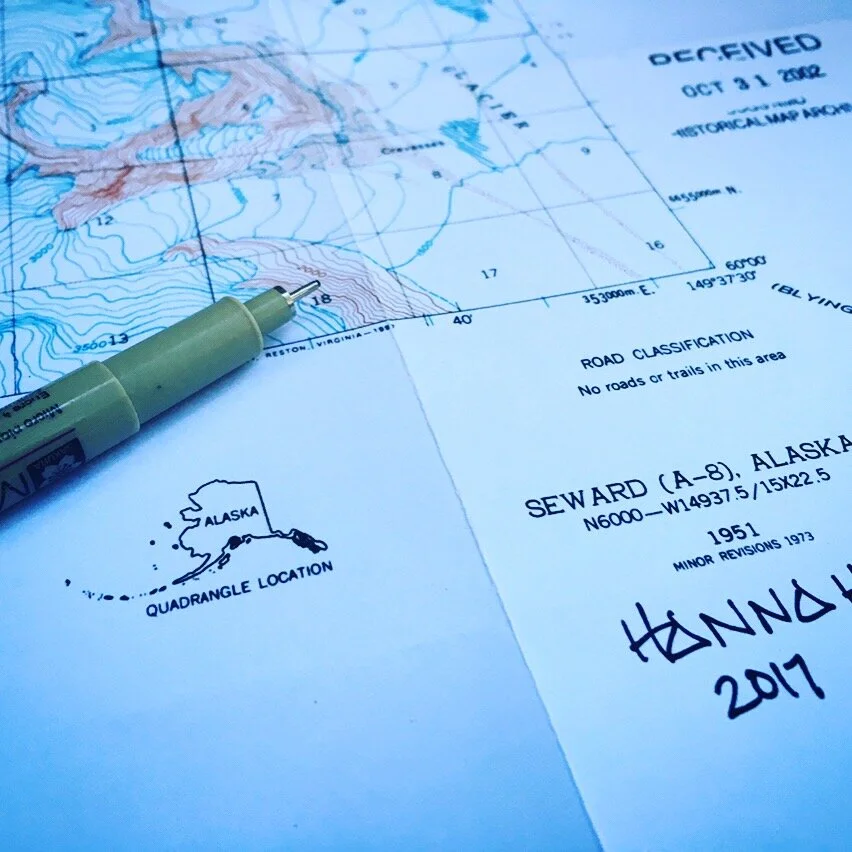 RECEIVED
OCT 31 2002
HISTORICAL MAP ARCHI
GLACIER
Crevasses
9
8
7
12
6655000m N.
16
17
3000
60°00'
149°37'30"
353000m. E.
18
40'
(BLYING
350013
RESTON, VIRGINIA—1981
ROAD CLASSIFICATION
No roads or trails in this area
SEWARD (A-8), ALASKA
N6000—W14937.5/15X22.5
1951
MINOR REVISIONS 1973
ALASKA
QUADRANGLE LOCATION
HANNAH
2017